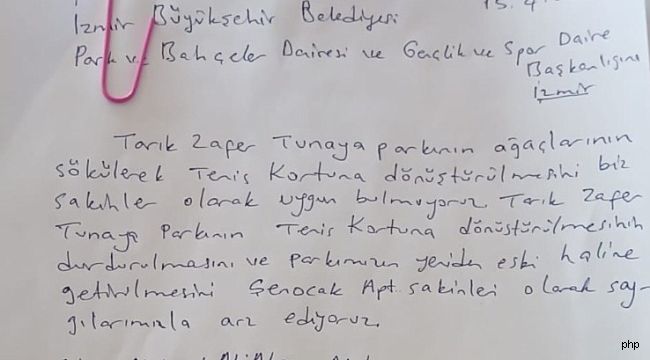 15.4
İzmir Büyükşehir Belediyesi
Park ve Bahçeler Dairesi ve Gençlik ve Spor Daire
Başkanlığına
İzmir
Tarık Zafer Tunaya parkının ağaçlarının
sökülerek Tenis Kortuna dönüştürülmesini biz
sakinler olarak uygun bulmuyoruz. Tarık Zafer
Tunaya Parkının Tenis Kortuna dönüştürülmesinin
durdurulmasını ve parkımızın yeniden eski haline
getirilmesini Şenocak Apt. sakinleri olarak say-
gılarımızla arz ediyoruz.
php